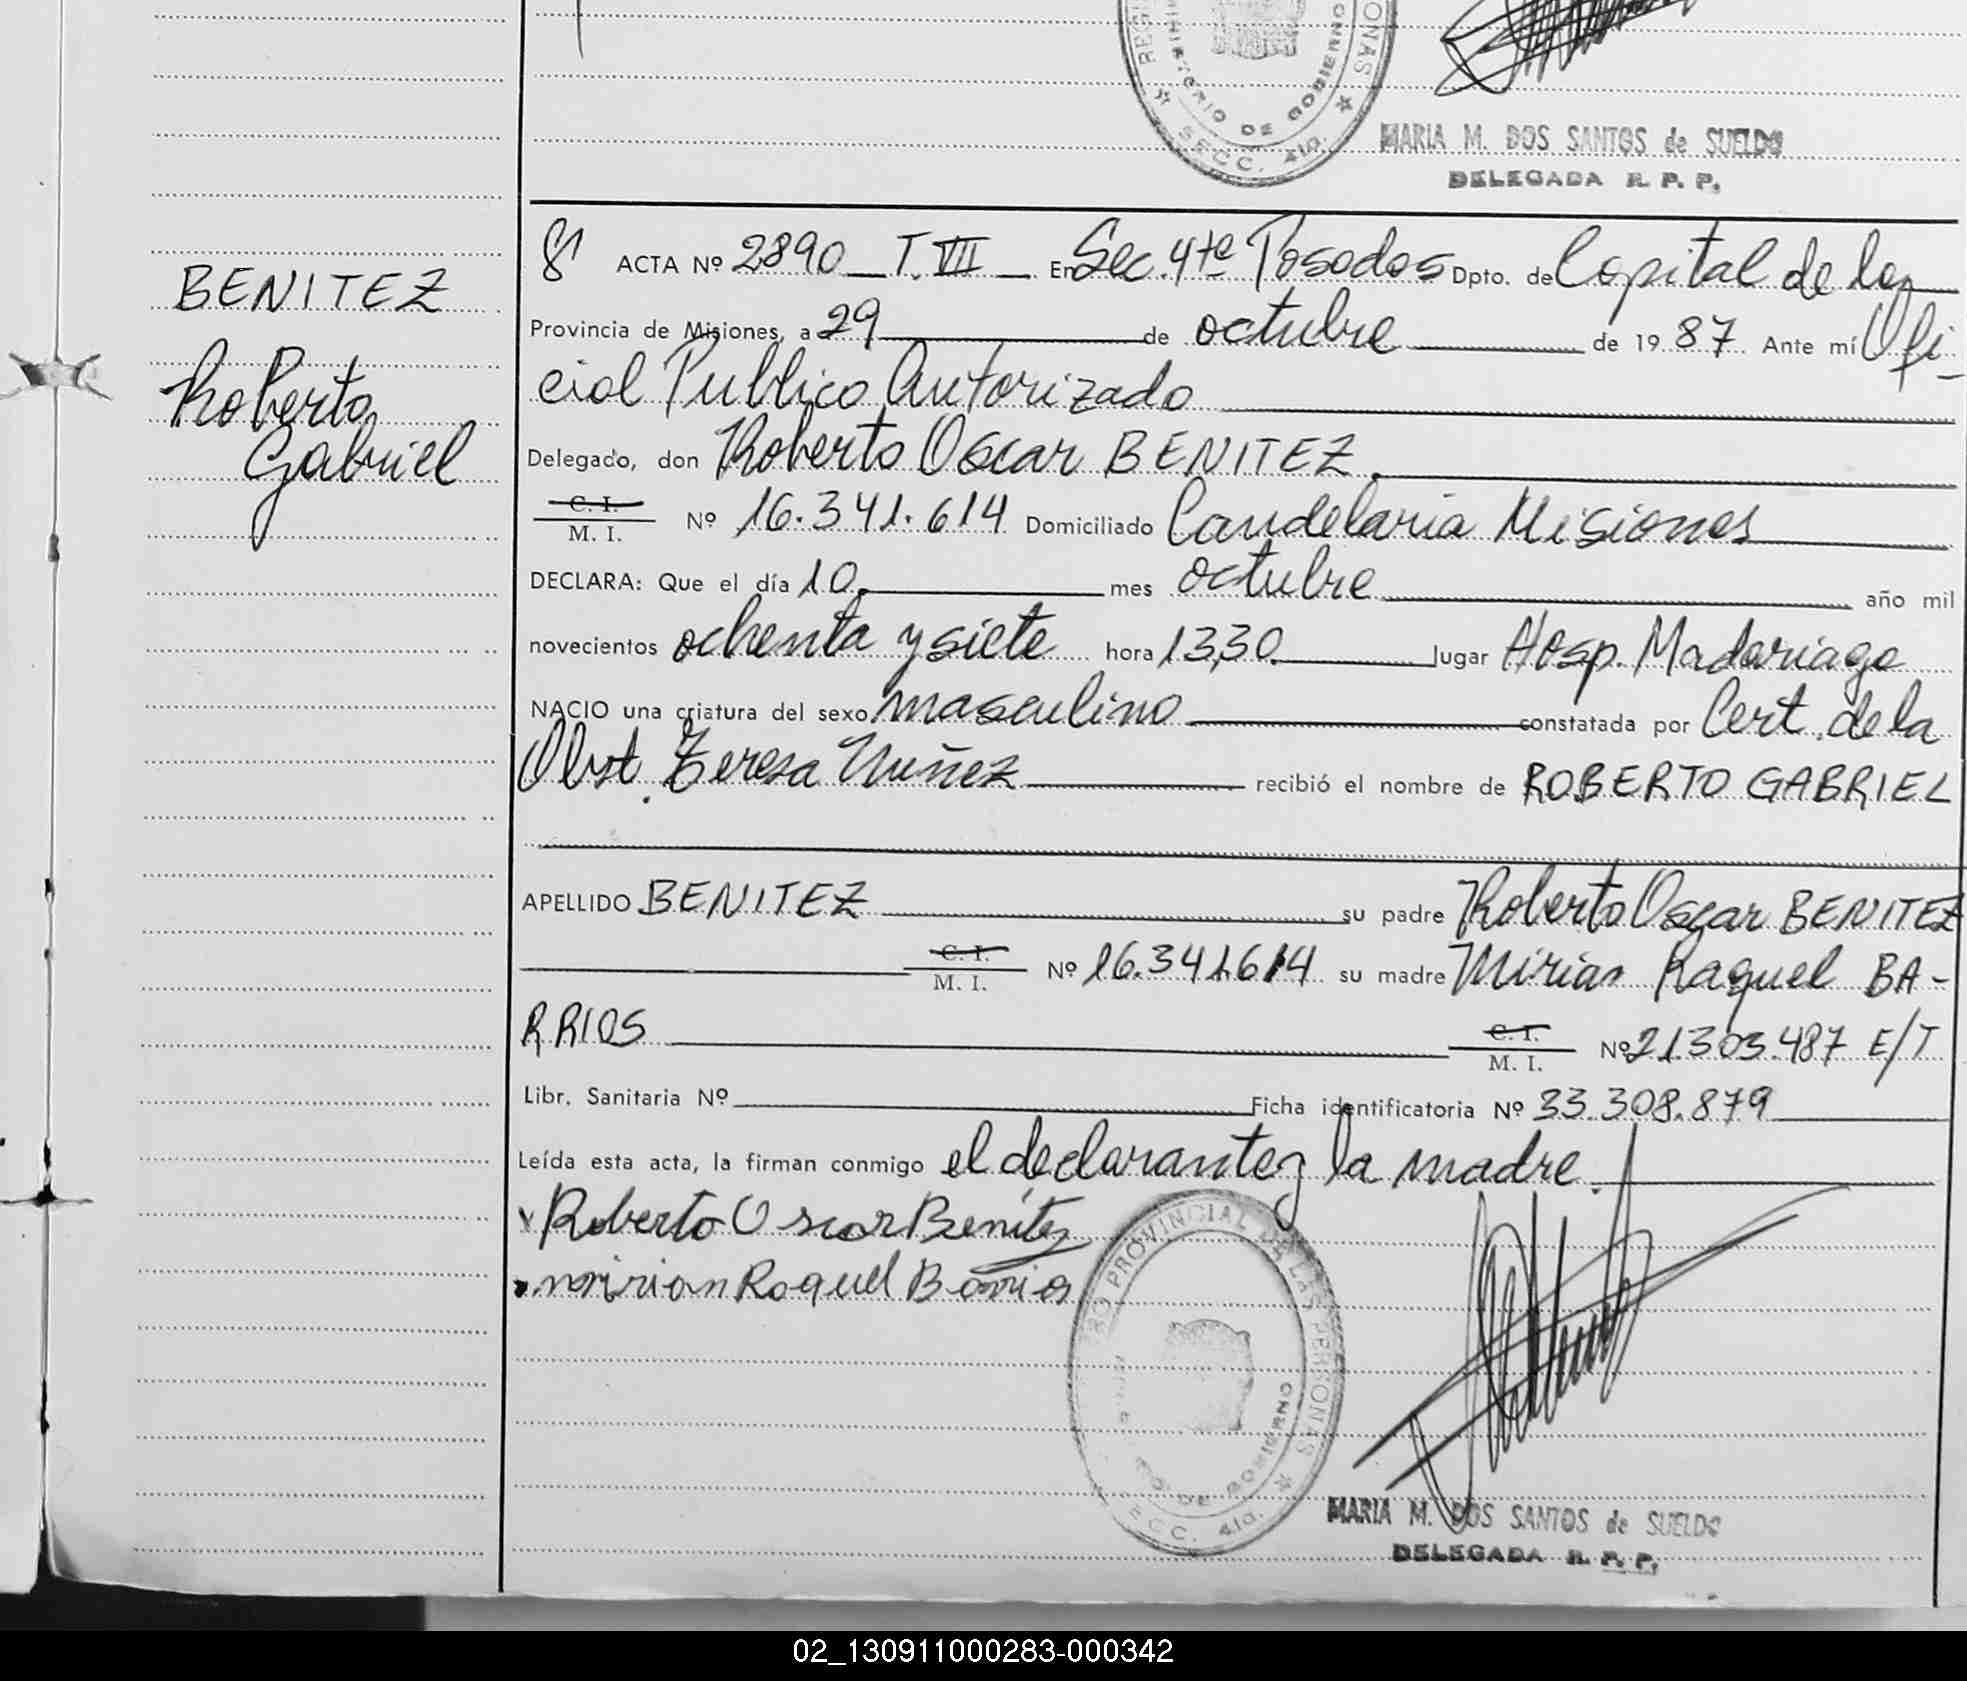 MINISTERIO DE GOBIERNO
SECC. 4ta.
MARIA M. DOS SANTOS de SUELDO
DELEGADA R. P. P.
BENITEZ
Roberto
Gabriel
ACTA Nº 2890 T. VII En Sec. 4ta Posadas Dpto. de Capital de la
Provincia de Misiones, a 29 de octubre de 1987 Ante mí Ofi-
cial Publico Autorizado
Delegado, don Roberto Oscar BENITEZ.
C. I.
M. I. Nº 16.341.614 Domiciliado Candelaria Misiones
DECLARA: Que el día 10 mes octubre año mil
novecientos ochenta y siete hora 13,30 lugar Hosp. Madariaga
NACIO una criatura del sexo masculino constatada por Cert. de la
Obst. Teresa Nuñez recibió el nombre de ROBERTO GABRIEL
APELLIDO BENITEZ su padre Roberto Oscar BENITEZ
C. I.
M. I. Nº 16.341.614 su madre Mirian Raquel BA-
RRIOS C. I.
M. I. Nº 21.303.487 E/T
Libr. Sanitaria Nº Ficha identificatoria Nº 33.308.879
Leída esta acta, la firman conmigo el declarante y la madre.
Roberto Oscar Benitez
mirian Raquel Barrios
REGISTRO PROVINCIAL DE LAS PERSONAS
DE GOBIERNO
SECC. 4ta.
MARIA M. DOS SANTOS de SUELDO
DELEGADA R. P. P.
02_130911000283-000342